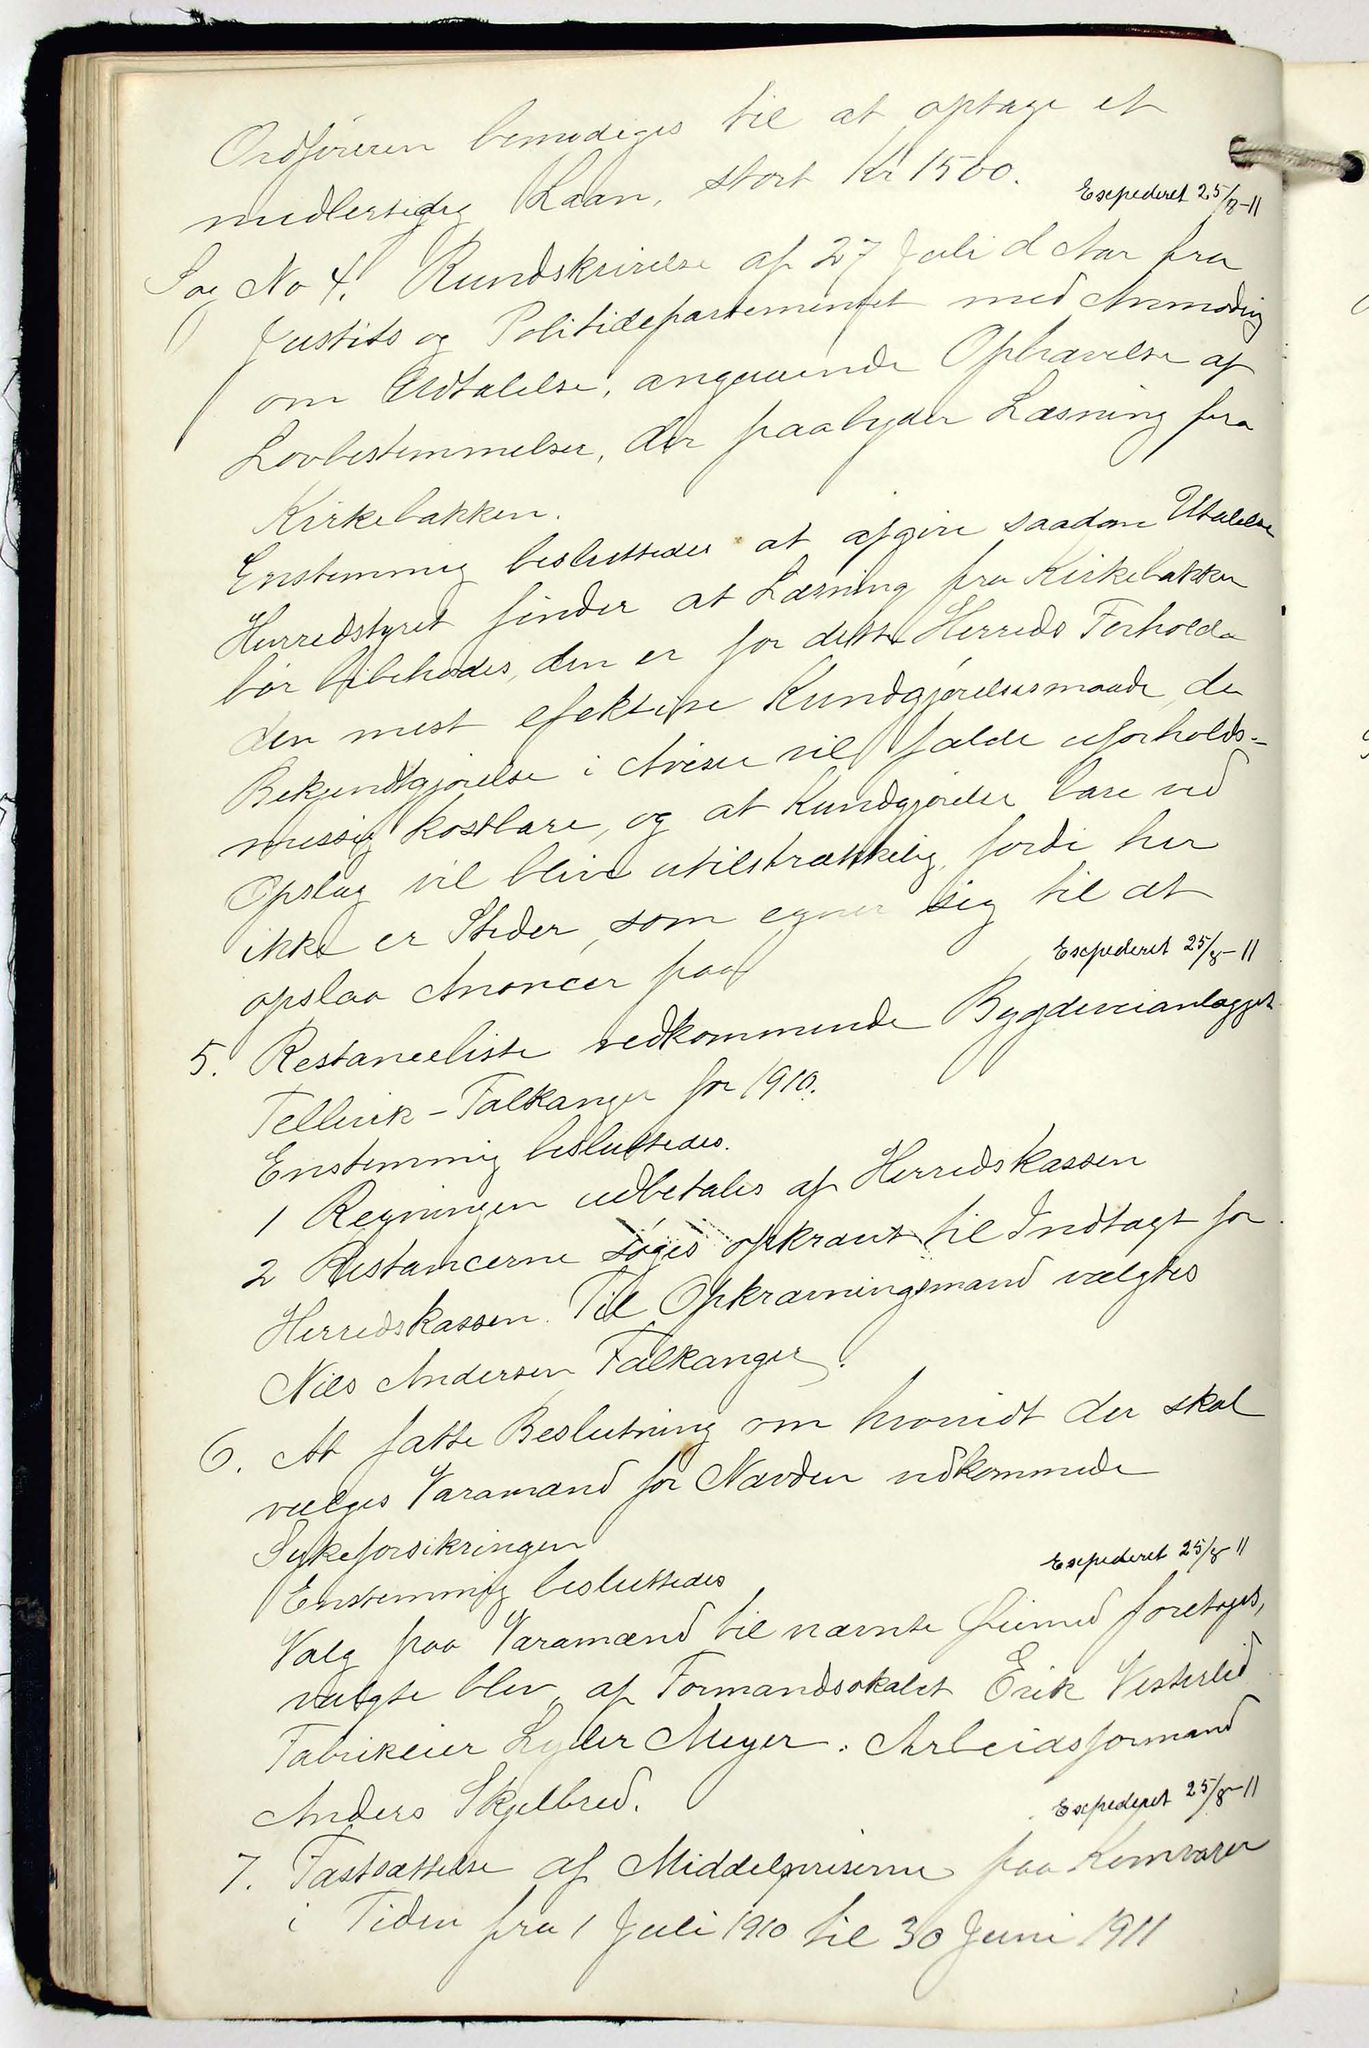 Ordføreren bemødiges til at optage et
midlertidig Laan, stort Kr 1500.
Exspederet 25/8-11
Sag No 4. Rundskrivelse af 27 Juli d Aar fra
Justits og Politidepartementet med Anmoding
om Udtalelse, angaaende Ophævelse af
Lovbestemmelser, der paabyder Læsning fra
Kirkebakken.
Enstemmig besluttedes at afgive saadan Utalelse
Herredstyret finder at Læsning fra Kirkebakken
bør bibehodes, den er for dette Herreds Forholde
den mest efektive Kundgjørelsesmaade, da
Bekjendtgjørelse i Aviser vil falde uforholds-
mæssig kostbare, og at Kundgjørelse bare ved
Opslag vil blive utilstrækkelig, fordi her
ikke er Steder, som egner sig til at
opslaa Anoncer paa
Exspederet 25/8-11
5. Restanceliste vedkommende Bygdeveianlægget
Tellevik-Falkanger for 1910.
Enstemmig besluttedes.
1 Regningen udbetales af Herredskassen
2 Restancerne søges opkrævt til Indtægt for
Herredskassen. Til Opkrævningsmand valgtes
Nils Andersen Falkanger.
6. At fatte Beslutning om hvorvidt der skal
vælges Varamænd for Nævden vedkommede
Sykeforsikringen
Exspederet 25/8 11
Enstemmig besluttedes
Valg paa Varamænd til nævnte Øiemed foretoges,
valgte blev af Formandsskabet Erik Vesterlid
Fabrikeier Lyder Meyer. Arbeidsformand
Anders Skjelbred.
Exspederet 25/8-11
7. Fastsættelse af Middelpriserne paa Kornvarer
i Tiden fra 1 Juli 1910 til 30 Juni 1911